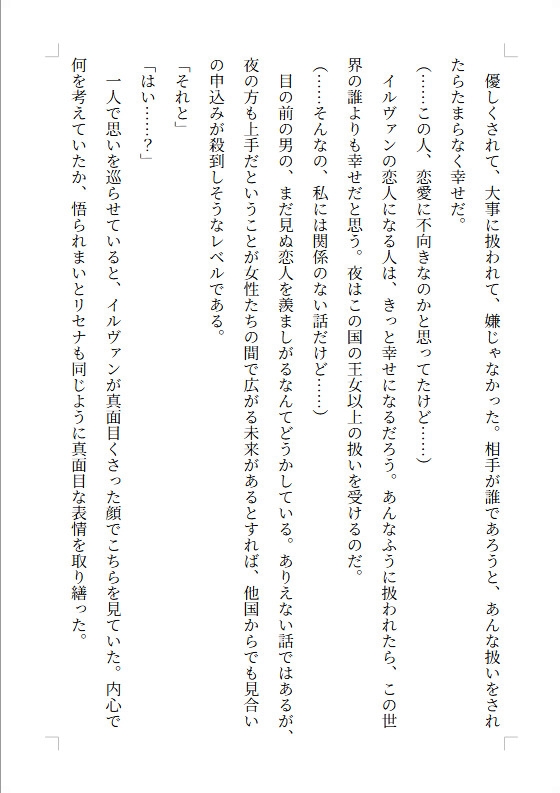 優しくされて、大事に扱われて、嫌じゃなかった。相手が誰であろうと、あんな扱いをされ
たらたまらなく幸せだ。
（……この人、恋愛に不向きなのかと思ってたけど……）
　イルヴァンの恋人になる人は、きっと幸せになるだろう。あんなふうに扱われたら、この世
界の誰よりも幸せだと思う。夜はこの国の王女以上の扱いを受けるのだ。
（……そんなの、私には関係のない話だけど……）
　目の前の男の、まだ見ぬ恋人を羨ましがるなんてどうかしている。ありえない話ではあるが、
夜の方も上手だということが女性たちの間で広がる未来があるとすれば、他国からでも見合い
の申込みが殺到しそうなレベルである。
「それと」
「はい……？」
　一人で思いを巡らせていると、イルヴァンが真面目くさった顔でこちらを見ていた。内心で
何を考えていたか、悟られまいとリセナも同じように真面目な表情を取り繕った。